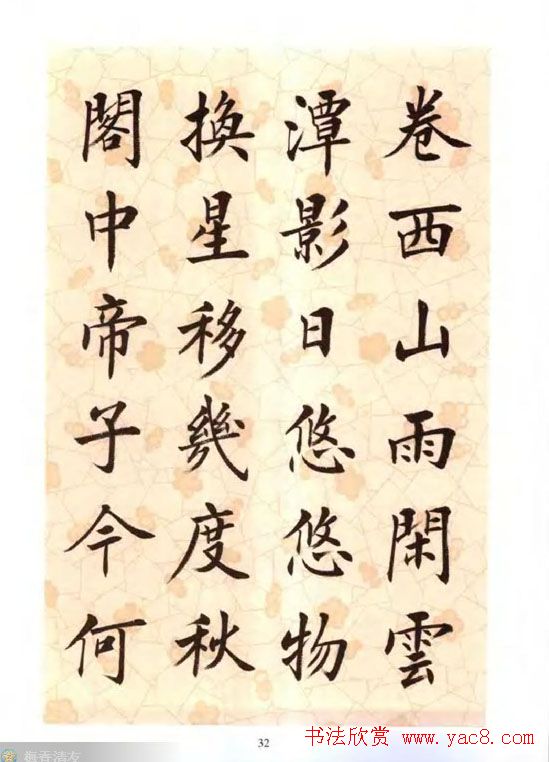 卷西山雨閑雲
潭影日悠悠物
換星移幾度秋
閣中帝子今何
32
书法欣赏 www.yac8.com
梅香清友